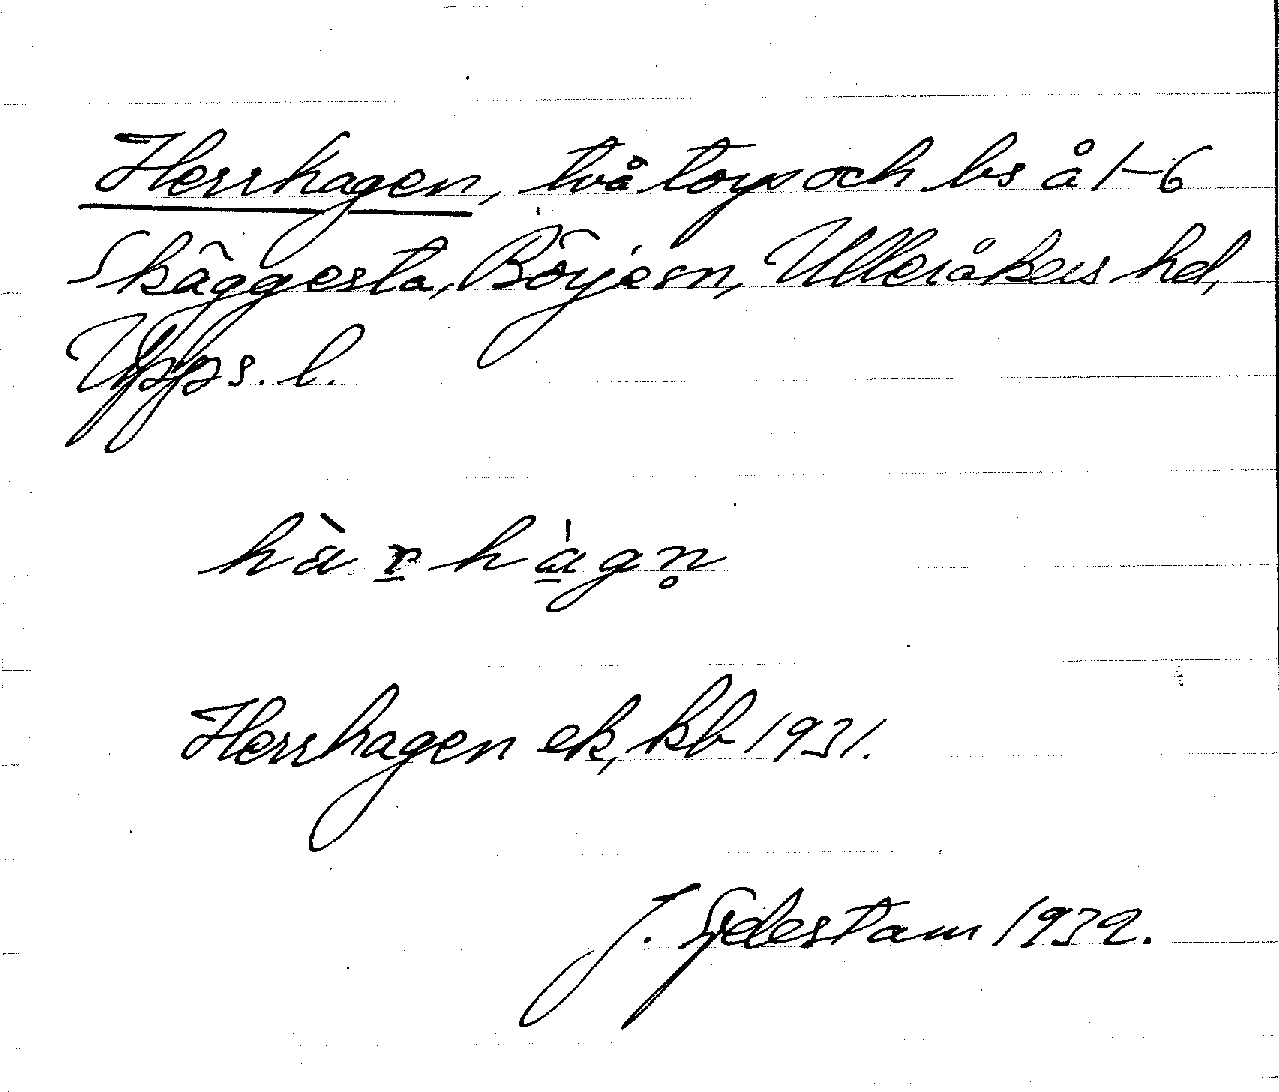 Herrhagen, två torp och bs å 1-6
Skäggesta, Börje sn, Ulleråkers hd,
Upps. l.
hàr̠hà̠gn̥
Herrhagen ek, kb 1931.
J. Sjdestam 1932.